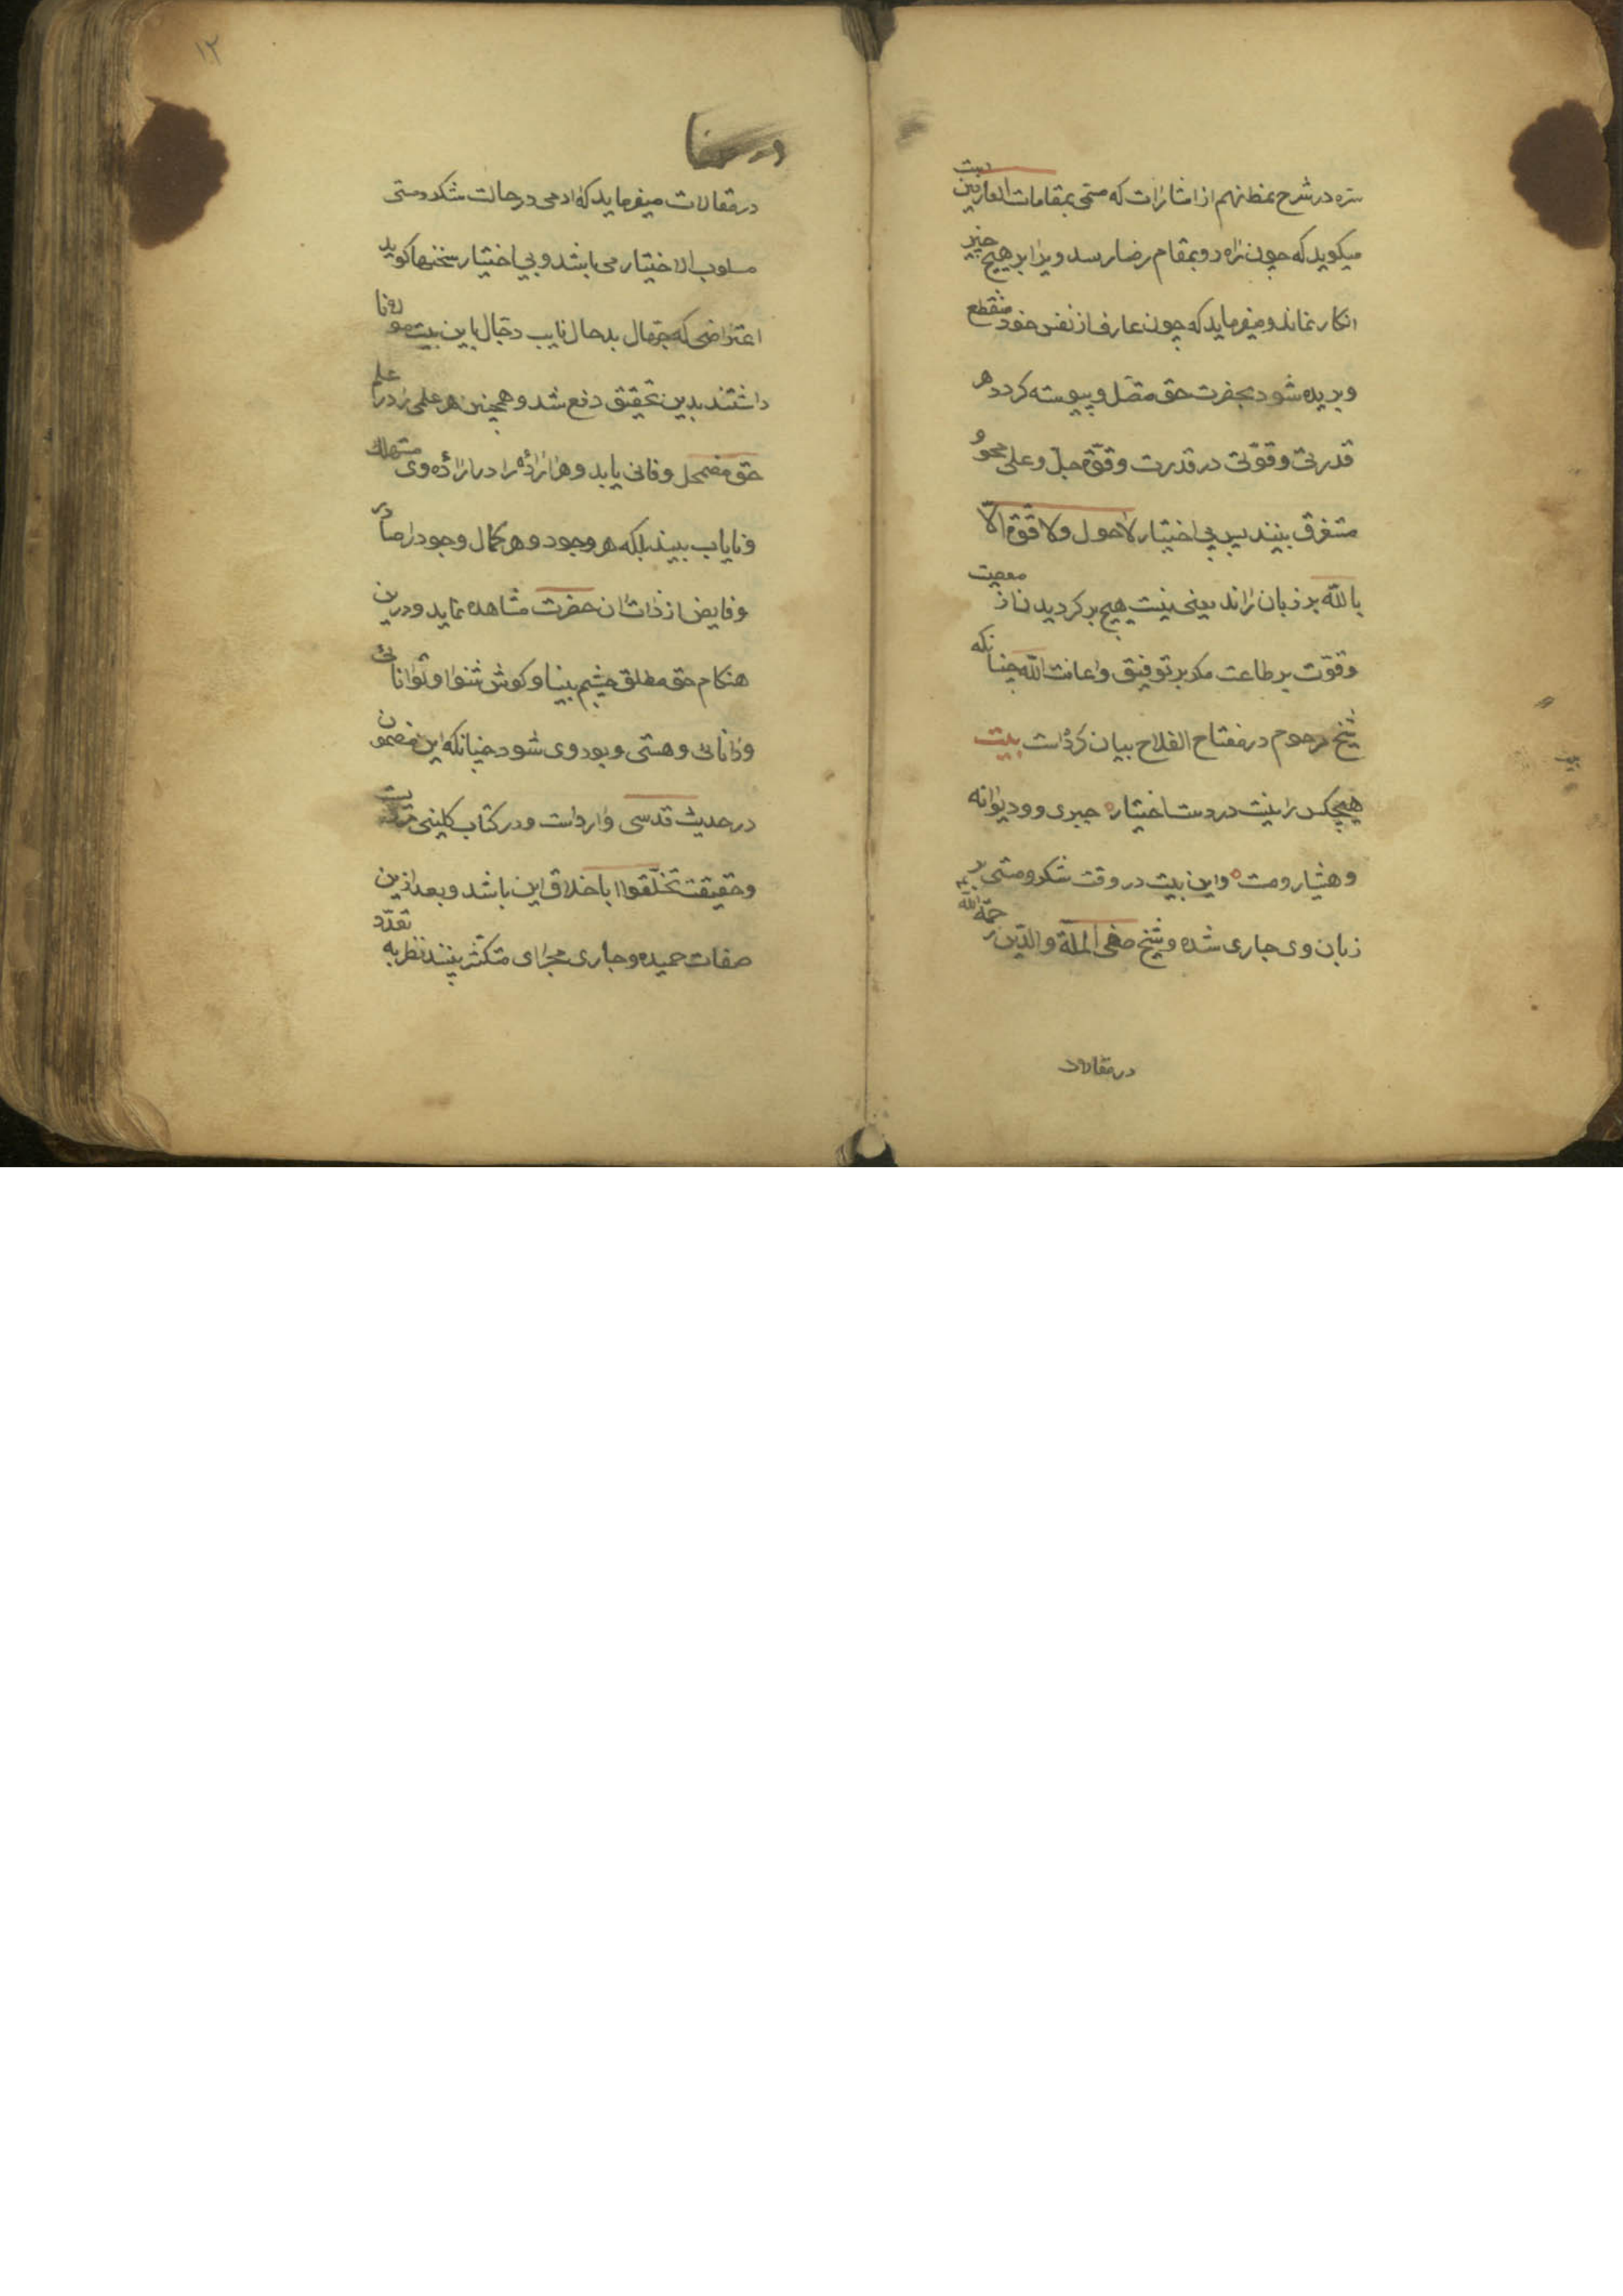 سره در شرح نمط نهم از اشارات که مسمی بمقامات العارفین است
میکوید که چون راه رو بمقام رضا رسد ویرا بر هیچ چیز
انکار نماند و میفرماید که چون عارف از نفس خود منقطع
و بریده شود بحضرت حق متصل و پیوسته کردد هر
قدرتی و قوتی در قدرت و قوة جل و علی محو و
متغرق بیند پس بی اختیار لا حول ولا قوة الا
بالله بر زبان راند یعنی نیست هیچ بر کردیدن از معصیت
و قوت بر طاعت مکر بر توفیق و اعانت الله چنانکه
شیخ مرحوم در مفتاح الفلاح بیان کرده است بیت
هیچکس را نیست در دست اختیار ه جبری وو دیوانه
و هشیار و مست ه و این بیت در وقت سکر و مستی بر
زبان وی جاری شده و شیخ صفی الملة والدین رحمة الله
در مقالات
۱۲
در مقالات میفرماید که ادمی در حالت سکر و مستی
مسلوب الاختیار می باشد و بی اختیار سخنها کوید
اعتراضی که جهال بد حال نایب دجال باین بیت مولانا
داشتند بدین تحقیق دفع شد و همچنین هر علمی را در علم
حق مضمحل و فانی یابد و هر اراده را در اراده وی مستهلک
و نایاب بیند بلکه هر وجود و هر کمال وجود را صادر
و فایض از ذات ان حضرت مشاهده نماید و درین
هنکام حق مطلق چشم بینا و کوش شنوا و توانائی
و دانائی و هستی و بود وی شود چنانکه این مضمون
در حدیث قدسی وارد است و در کتاب کلینی
و حقیقت تخلقوا باخلاق این باشد و بعد ازین تعدد
صفات حمیده و جاری مجرای متکثر بیند نظر به